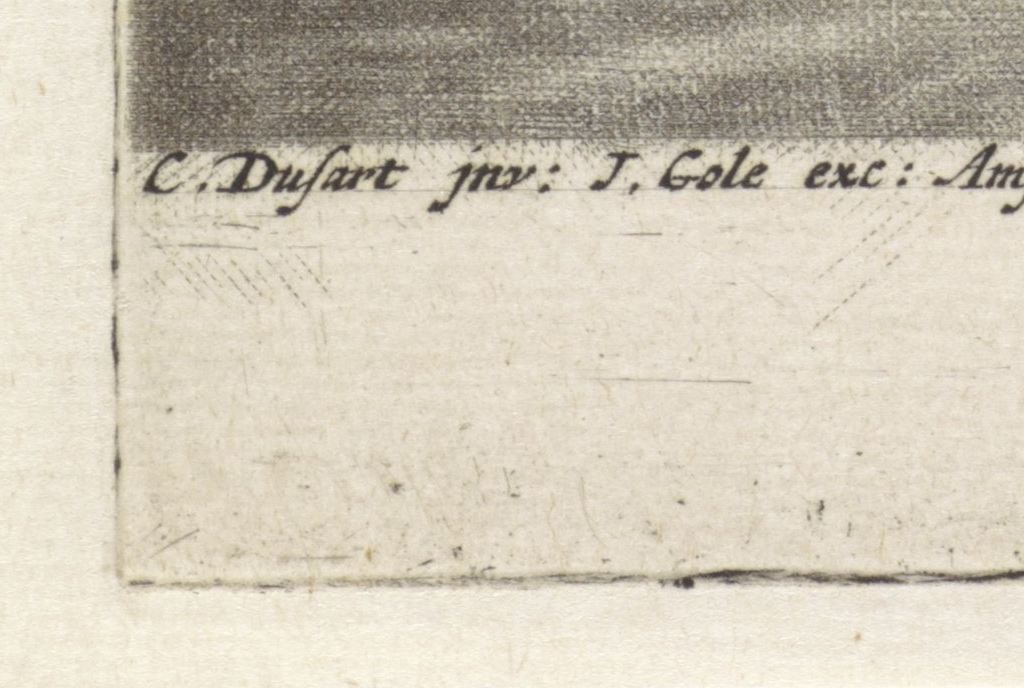 C. Duſart jnv: J. Gole exc: Am